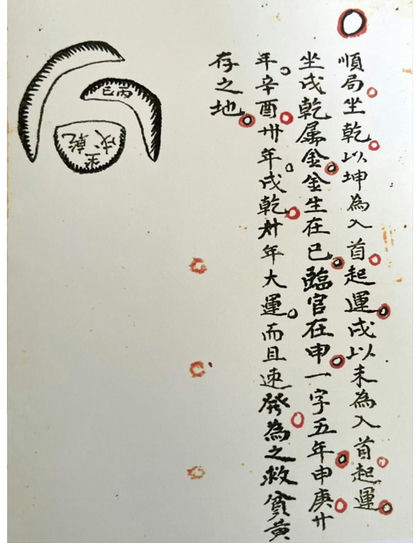 順局坐乾以坤為入首起運戌以未為入首起運
坐戌乾屬金金生在巳臨官在申一字五年申庚廿
年辛酉卅年戌乾卅年大運而且速發為之救貧黃
存之地
丙巳
坐乾戌